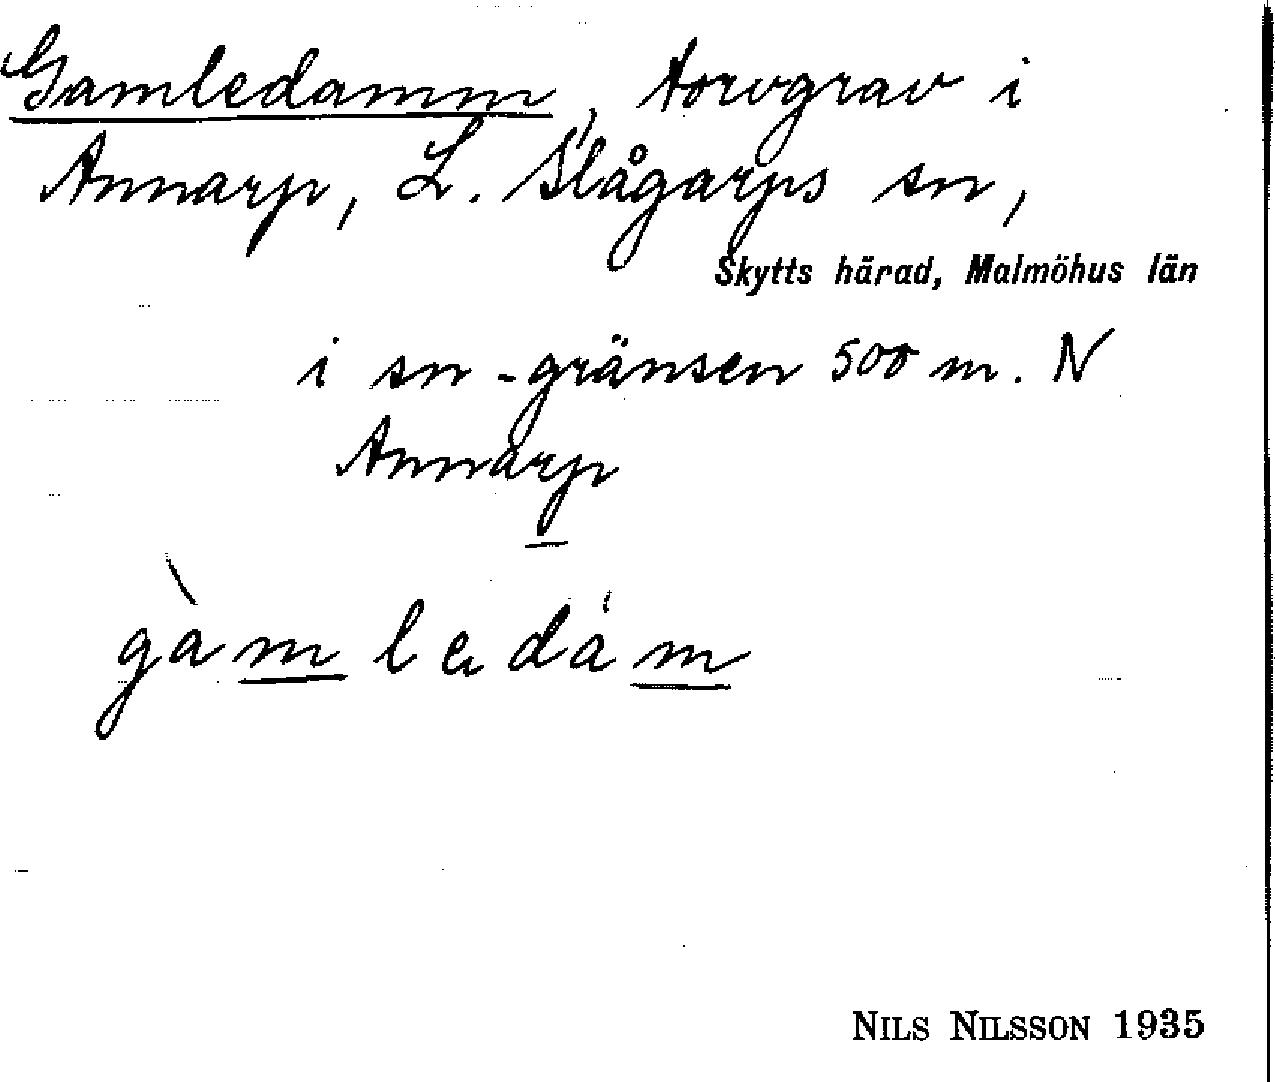 Gamledamm, torvgrav i
Annarp, L. Slågarps sn,
Skytts härad, Malmöhus län
i sn-gränsen 500 m. N
Annarp
gàmledám
NILS NILSSON 1935